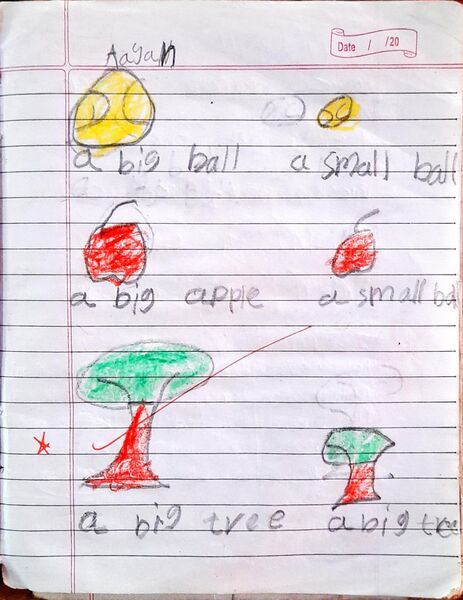 Date / /20
Aayan
a big ball a small ball
a big apple a small ball
a big tree a big tree